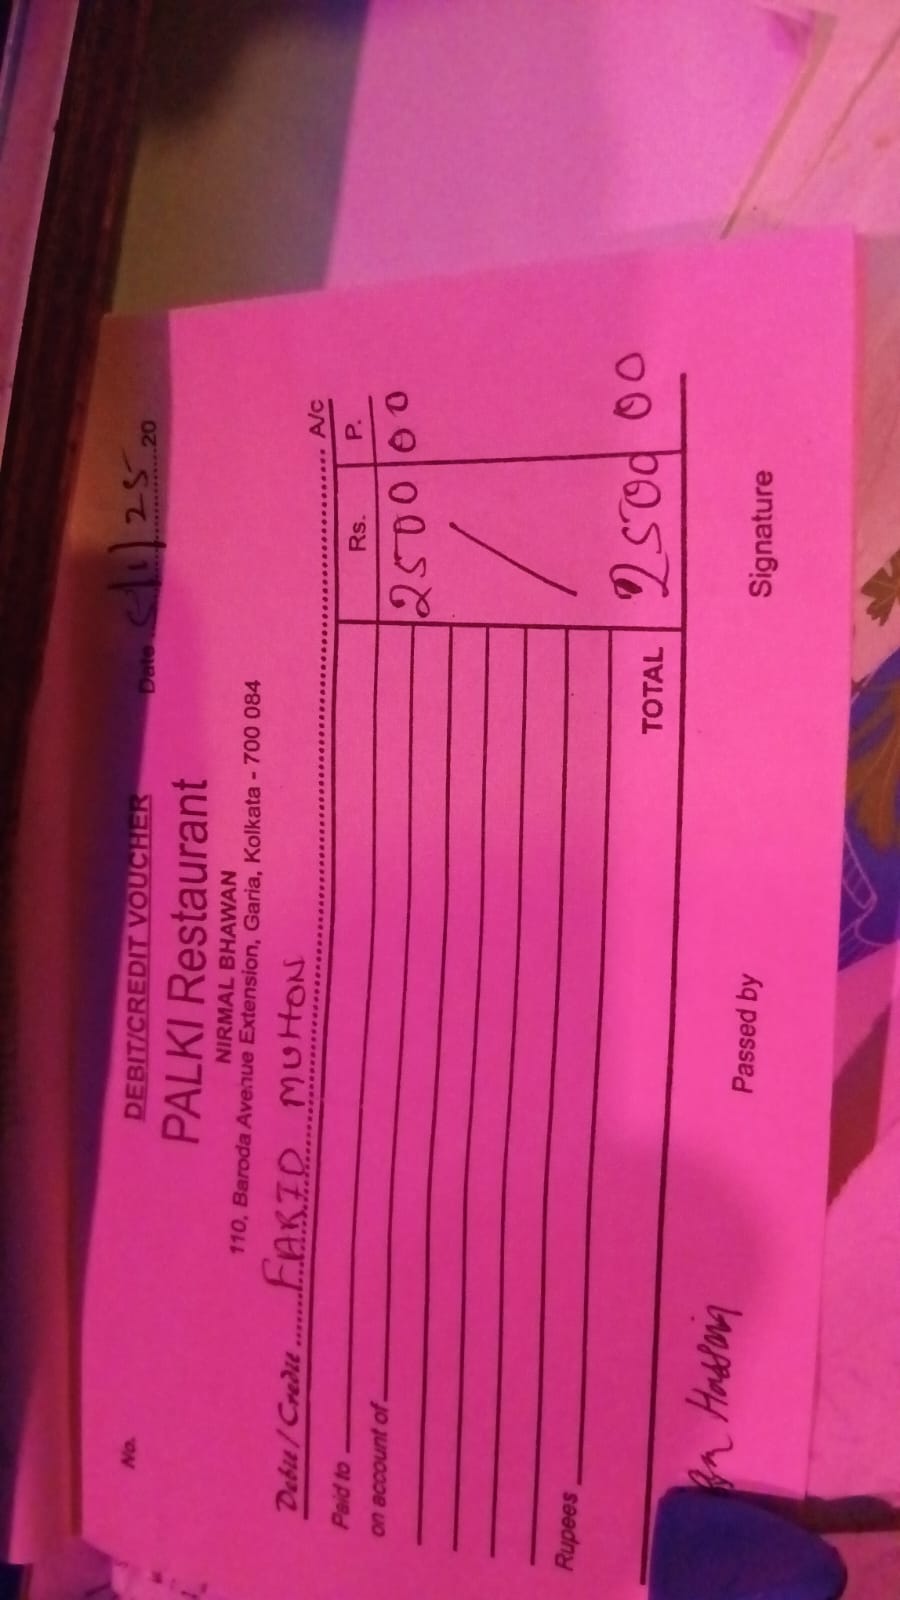 No.
DEBIT/CREDIT VOUCHER
Date 5/1/25 20
PALKI Restaurant
NIRMAL BHAWAN
110, Baroda Avenue Extension, Garia, Kolkata - 700 084
Debit / Credit FARID MUHON A/c
Paid to Rs. P.
on account of 2500 00
Rupees
TOTAL 2500 00
Hossain
Passed by Signature